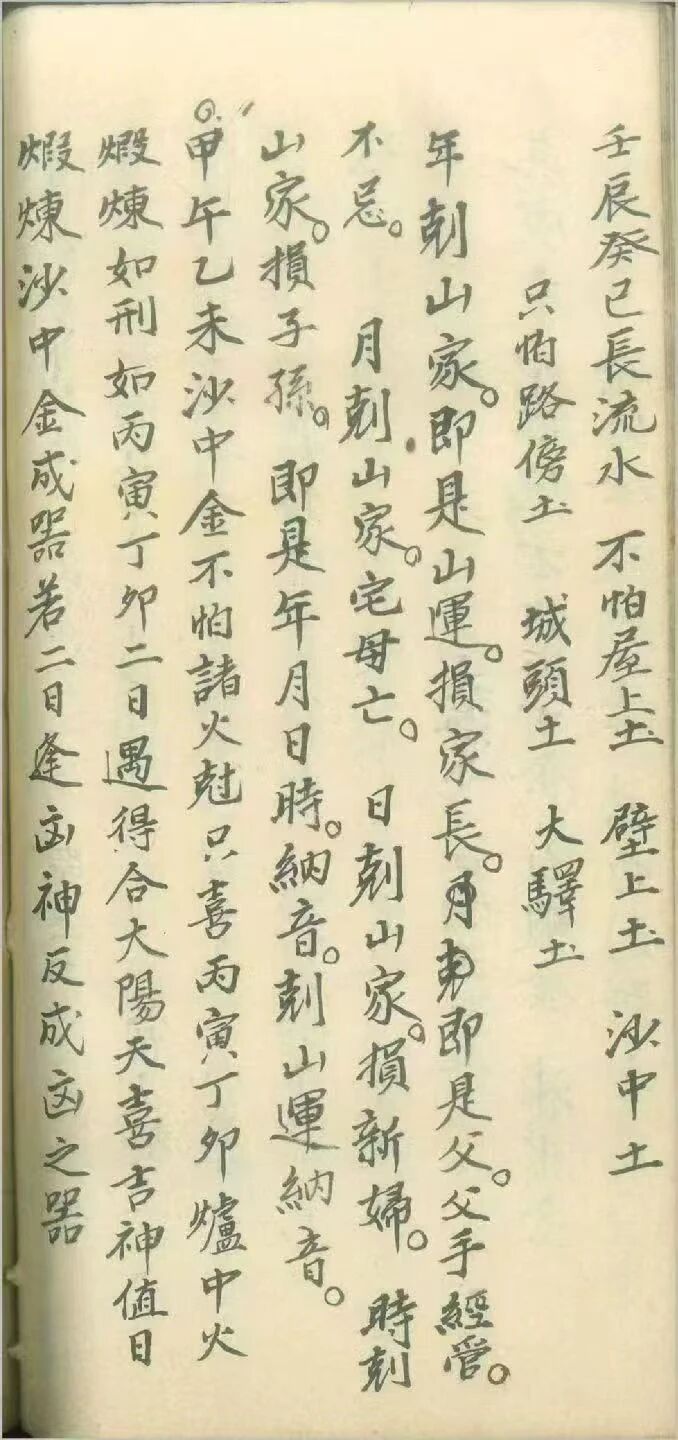 壬辰癸巳長流水 不怕屋上土 壁上土 沙中土
只怕路傍土 城頭土 大驛土
年剋山家。即是山運。損家長。即是父。父手經營。
不忌。 月剋山家。宅母亡。 日剋山家。損新婦。 時剋
山家。損子孫。 即是年月日時。納音。剋山運納音。
甲午乙未沙中金不怕諸火尅只喜丙寅丁卯爐中火
煅煉如刑如丙寅丁卯二日遇得合大陽天喜吉神值日
煅煉沙中金成器若二日逢凶神反成凶之器